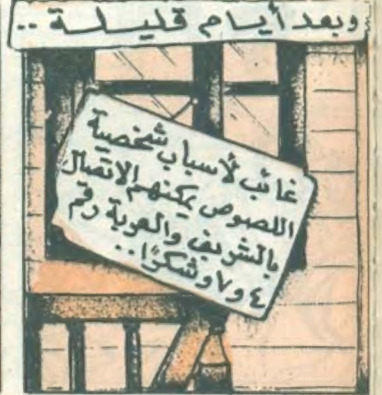 وبعد أيام قليلة ..
غائب لأسباب شخصية
اللصوص يمكنهم الاتصال
بالشريف والعربة رقم
٤ و ٧ وشكرًا ..